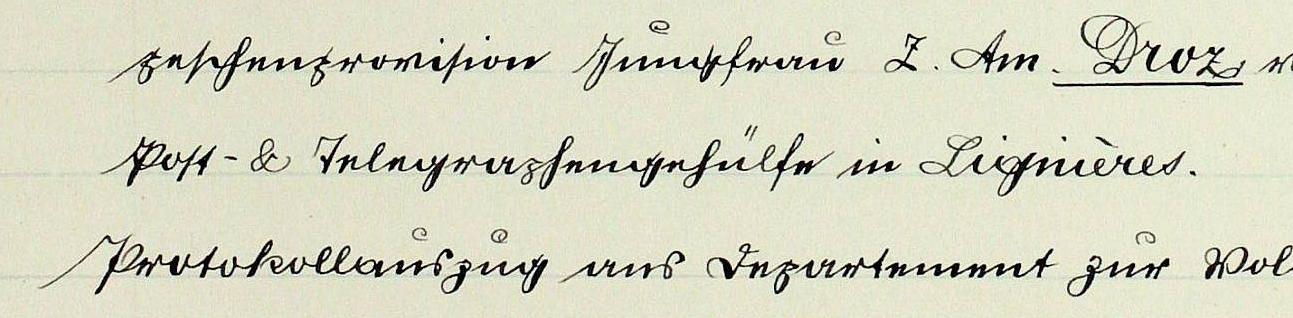 peschenprovision Jungfrau Z. Am. Droz,
Post- & Telegraphengehülfe in Lignières.
Protokollauszug ans Departement zur Vol